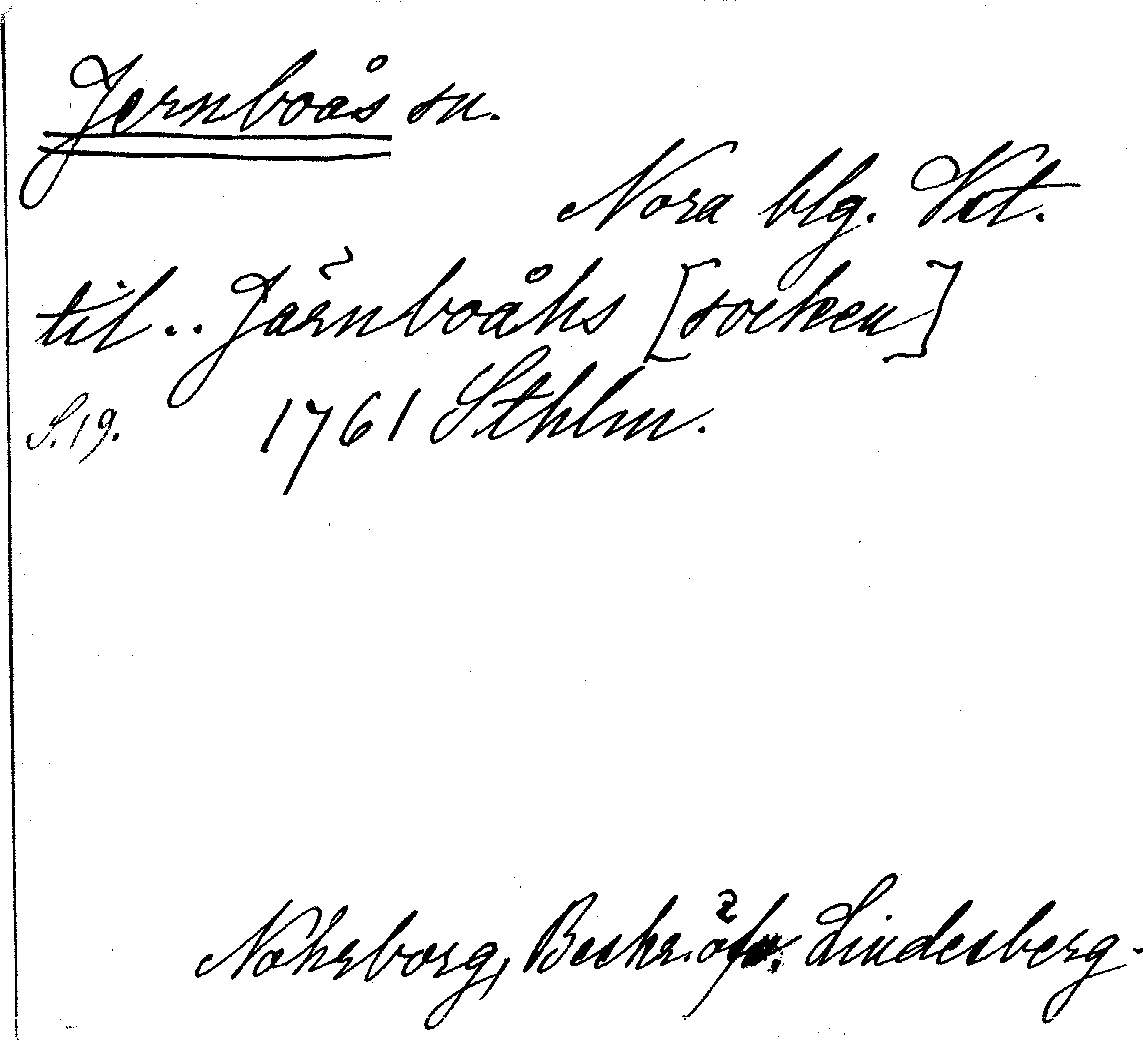 Jernboås sn.
Nora blg. Vstl.
til .. Järnboåhs [socken]
S. 19. 1761 Sthlm.
Nohrborg, Beskr. öfv. Lindesberg.